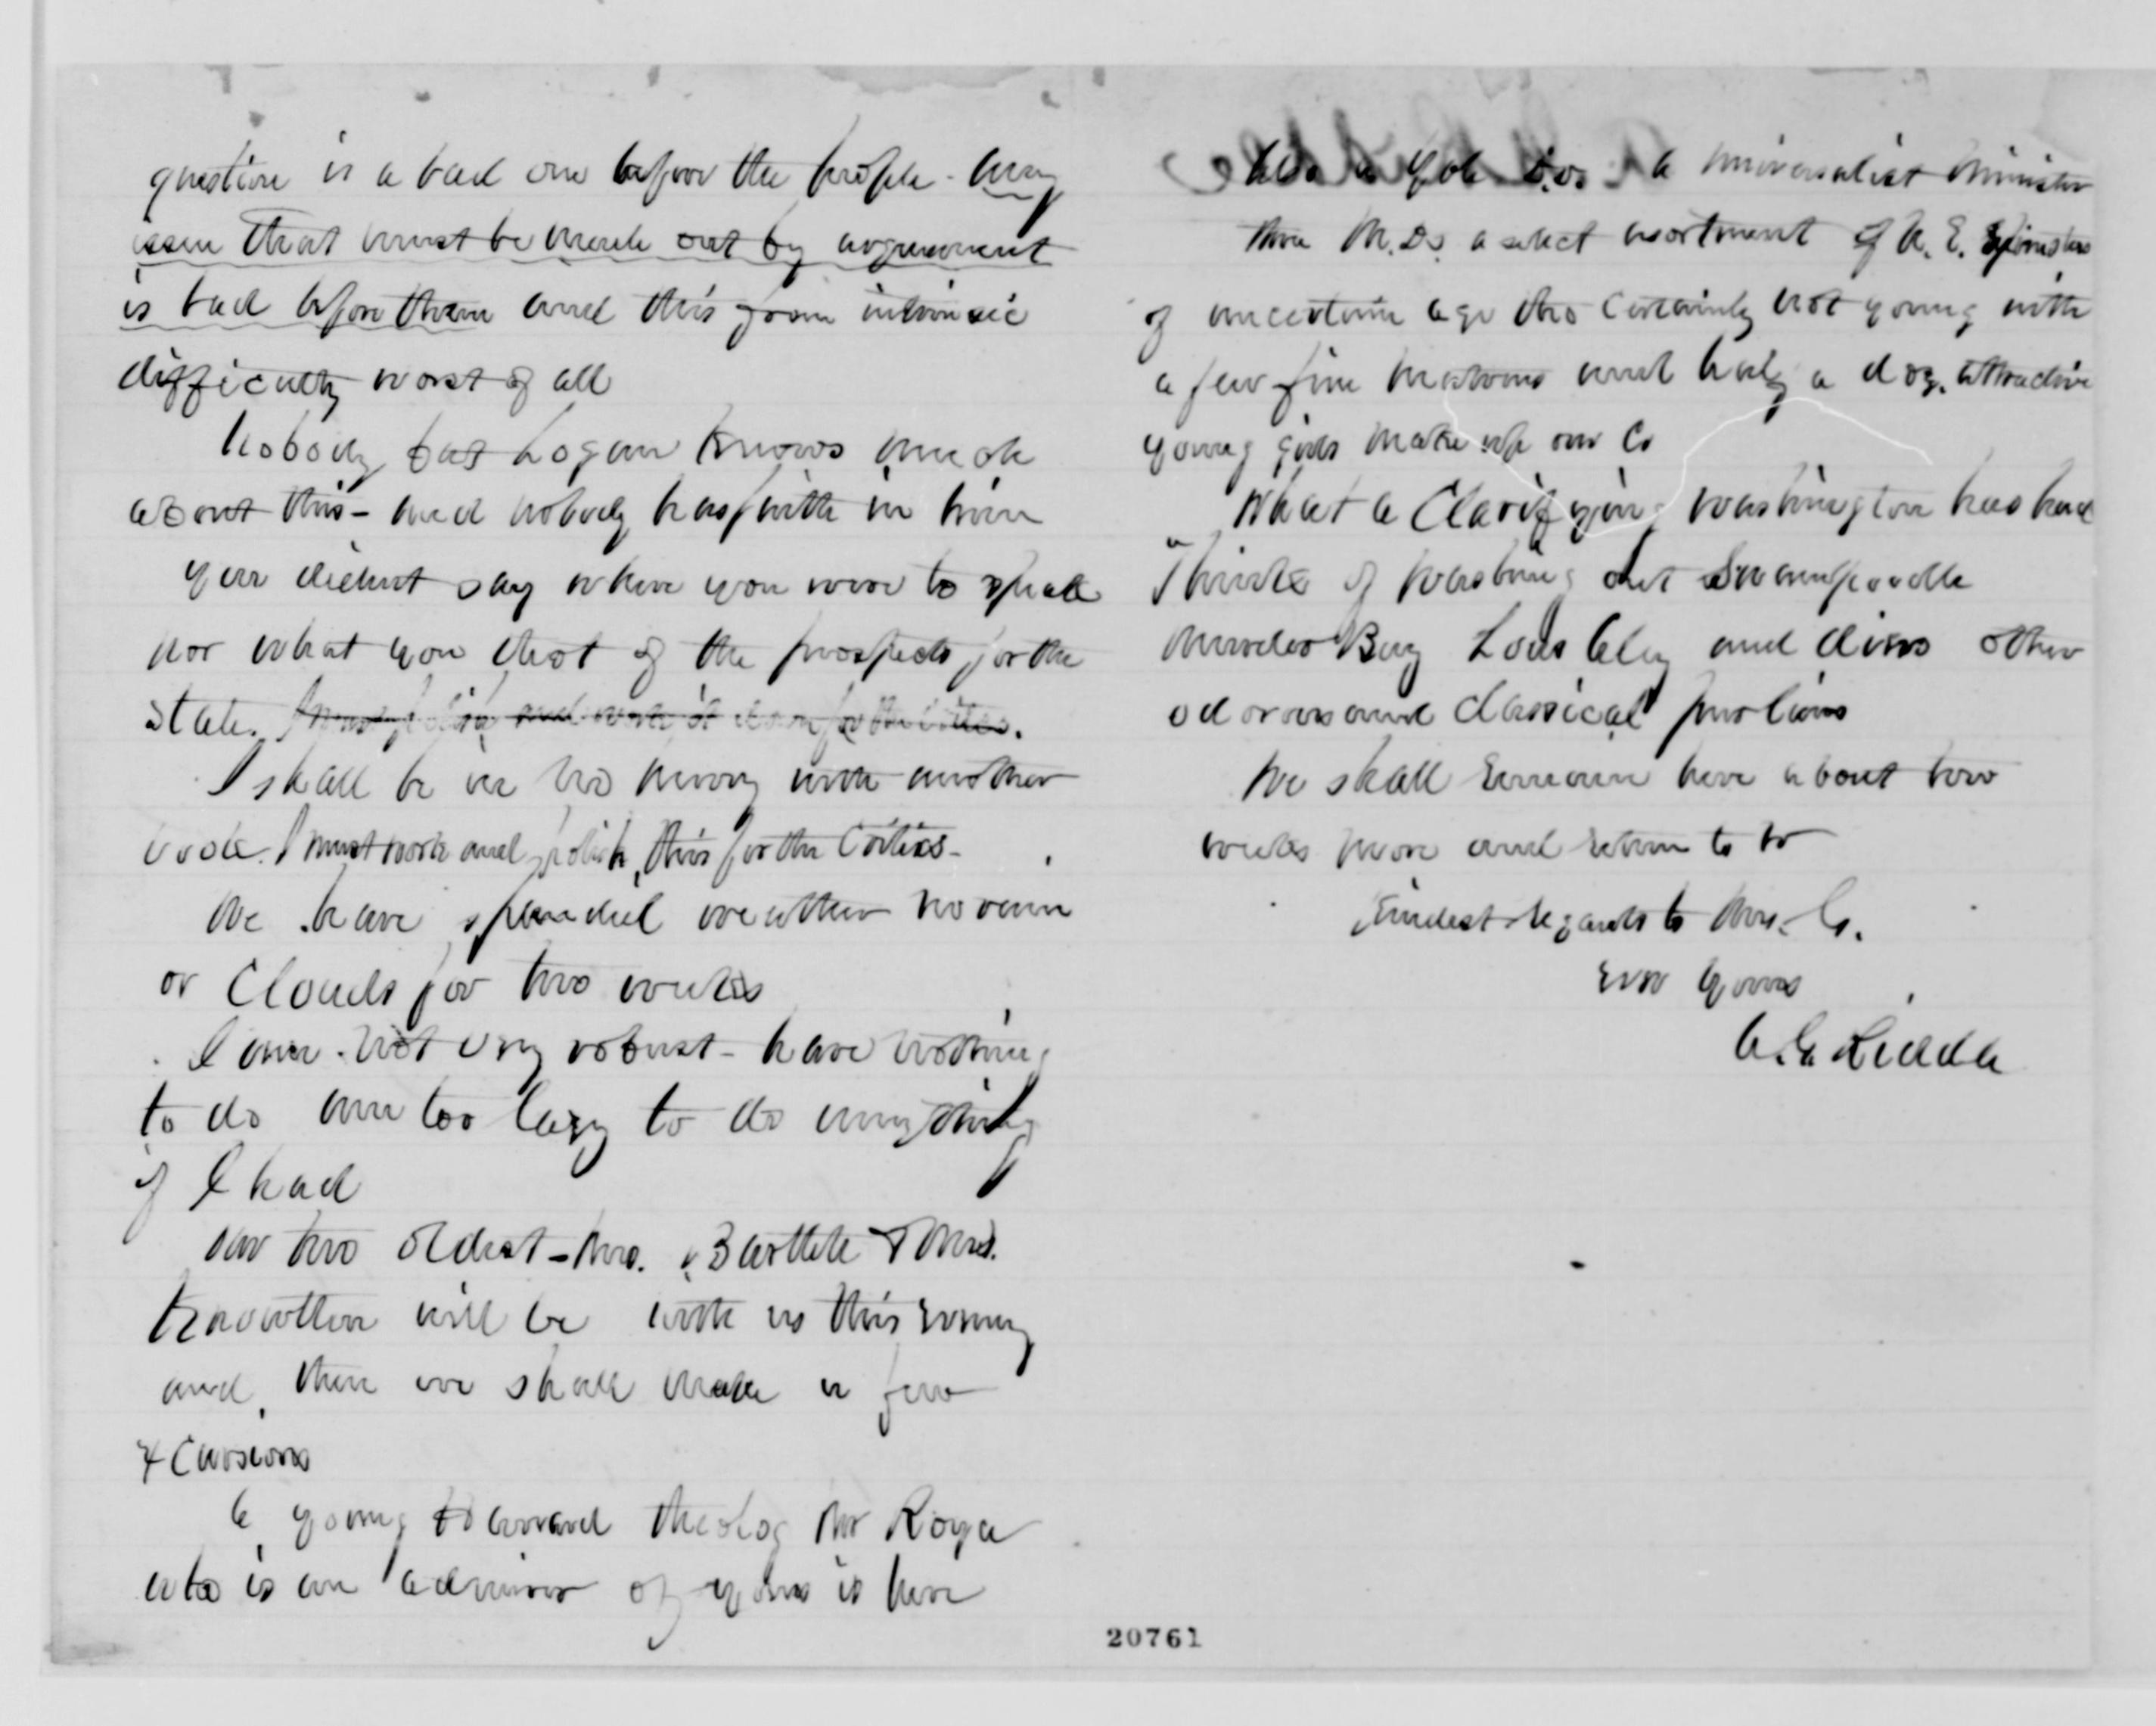 question is a bad one before the people. Any
issue that must be made out by argument
is bad before them and this from intrinsic
difficulty worst of all
Nobody but Logan knows much
about this - and nobody has faith in him
You didnt say where you were to speak
nor what you thot of the prospects for the
State.
I shall be in no hurry with another
book. I must work and polish this for the Critics -
We have splendid weather no rain
or Clouds for two weeks
I am not very robust - have nothing
to do am too lazy to do anything
if I had
Our two oldest - Mrs. Bartlett & Mrs.
Knowlton will be with us this evening
and then we shall make a few
excursions
A young Harvard theolog Mr Royce
who is an admirer of yours is here
Also a Yale D.D. a Universalist Minister
three M.Ds. a select asortment of N. E. Spinsters
of uncertain age tho certainly not young with
a few fine matrons and half a doz. attractive
young girls make up our Co
What a Clarifying Washington has had
Think of washing out Swampoodle
Murder Bay Louse Aly and divers other
odorous and classical purlieus
We shall remain here about two
weeks more and return to W
Kindest regards to Mrs. G.
Ever Yours
A. G. Riddle
20761